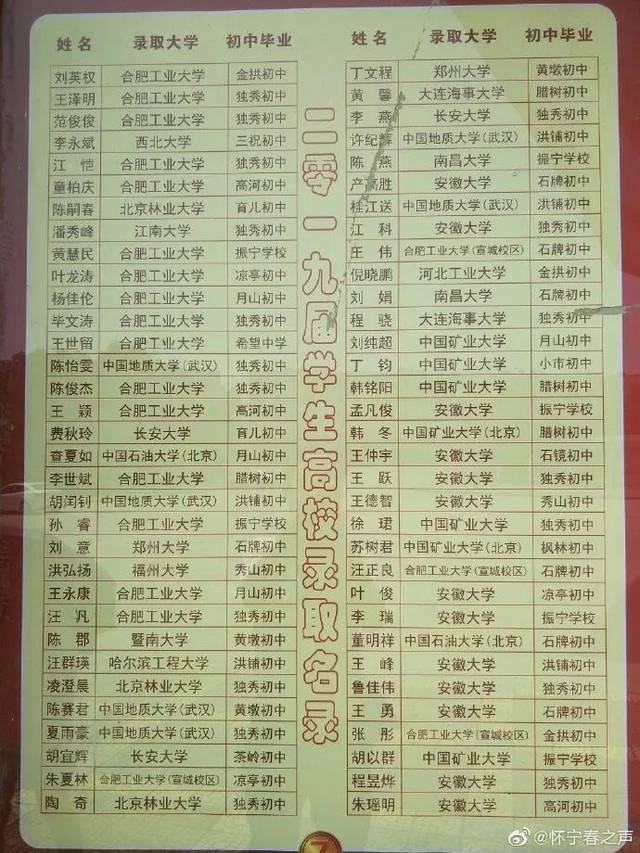 姓名 录取大学 初中毕业
刘英权 合肥工业大学 金拱初中
王泽明 合肥工业大学 独秀初中
范俊俊 合肥工业大学 独秀初中
李永斌 西北大学 三祝初中
江恺 合肥工业大学 独秀初中
童柏庆 合肥工业大学 高河初中
陈嗣春 北京林业大学 育儿初中
潘秀峰 江南大学 独秀初中
黄慧民 合肥工业大学 振宁学校
叶龙涛 合肥工业大学 凉亭初中
杨佳伦 合肥工业大学 月山初中
毕文涛 合肥工业大学 独秀初中
王世留 合肥工业大学 希望中学
陈怡雯 中国地质大学(武汉) 独秀初中
陈俊杰 合肥工业大学 独秀初中
王颖 合肥工业大学 高河初中
费秋玲 长安大学 育儿初中
查夏如 中国石油大学(北京) 月山初中
李世斌 合肥工业大学 腊树初中
胡闰钊 中国地质大学(武汉) 洪铺初中
孙睿 合肥工业大学 振宁学校
刘意 郑州大学 石牌初中
洪弘扬 福州大学 秀山初中
王永康 合肥工业大学 月山初中
汪凡 合肥工业大学 独秀初中
陈郡 暨南大学 黄墩初中
汪群瑛 哈尔滨工程大学 洪铺初中
凌澄晨 北京林业大学 独秀初中
陈赛君 中国地质大学(武汉) 黄墩初中
夏雨豪 中国地质大学(武汉) 独秀初中
胡宜辉 长安大学 茶岭初中
朱夏林 合肥工业大学(宣城校区) 凉亭初中
陶奇 北京林业大学 独秀初中
二零一九届学生高校录取名录
姓名 录取大学 初中毕业
丁文程 郑州大学 黄墩初中
黄馨 大连海事大学 腊树初中
李燕 长安大学 独秀初中
许纪辉 中国地质大学(武汉) 洪铺初中
陈燕 南昌大学 振宁学校
产高胜 安徽大学 石牌初中
桂江送 中国地质大学(武汉) 洪铺初中
江科 安徽大学 独秀初中
庄伟 合肥工业大学(宣城校区) 石牌初中
倪晓鹏 河北工业大学 金拱初中
刘娟 南昌大学 石牌初中
程骁 大连海事大学 独秀初中
刘纯超 中国矿业大学 月山初中
丁钧 中国矿业大学 小市初中
韩铭阳 中国矿业大学 腊树初中
孟凡俊 安徽大学 振宁学校
韩冬 中国矿业大学(北京) 腊树初中
王仲宇 安徽大学 石镜初中
王跃 安徽大学 独秀初中
王德智 安徽大学 秀山初中
徐珺 中国矿业大学 独秀初中
苏树君 中国矿业大学(北京) 枫林初中
汪正良 合肥工业大学(宣城校区) 石牌初中
叶俊 安徽大学 凉亭初中
李瑞 安徽大学 振宁学校
董明祥 中国石油大学(北京) 石牌初中
王峰 安徽大学 洪铺初中
鲁佳伟 安徽大学 独秀初中
王勇 安徽大学 石牌初中
张彤 合肥工业大学(宣城校区) 金拱初中
胡以群 中国矿业大学 振宁学校
程昱烨 安徽大学 独秀初中
朱瑶明 安徽大学 高河初中
7
@怀宁春之声